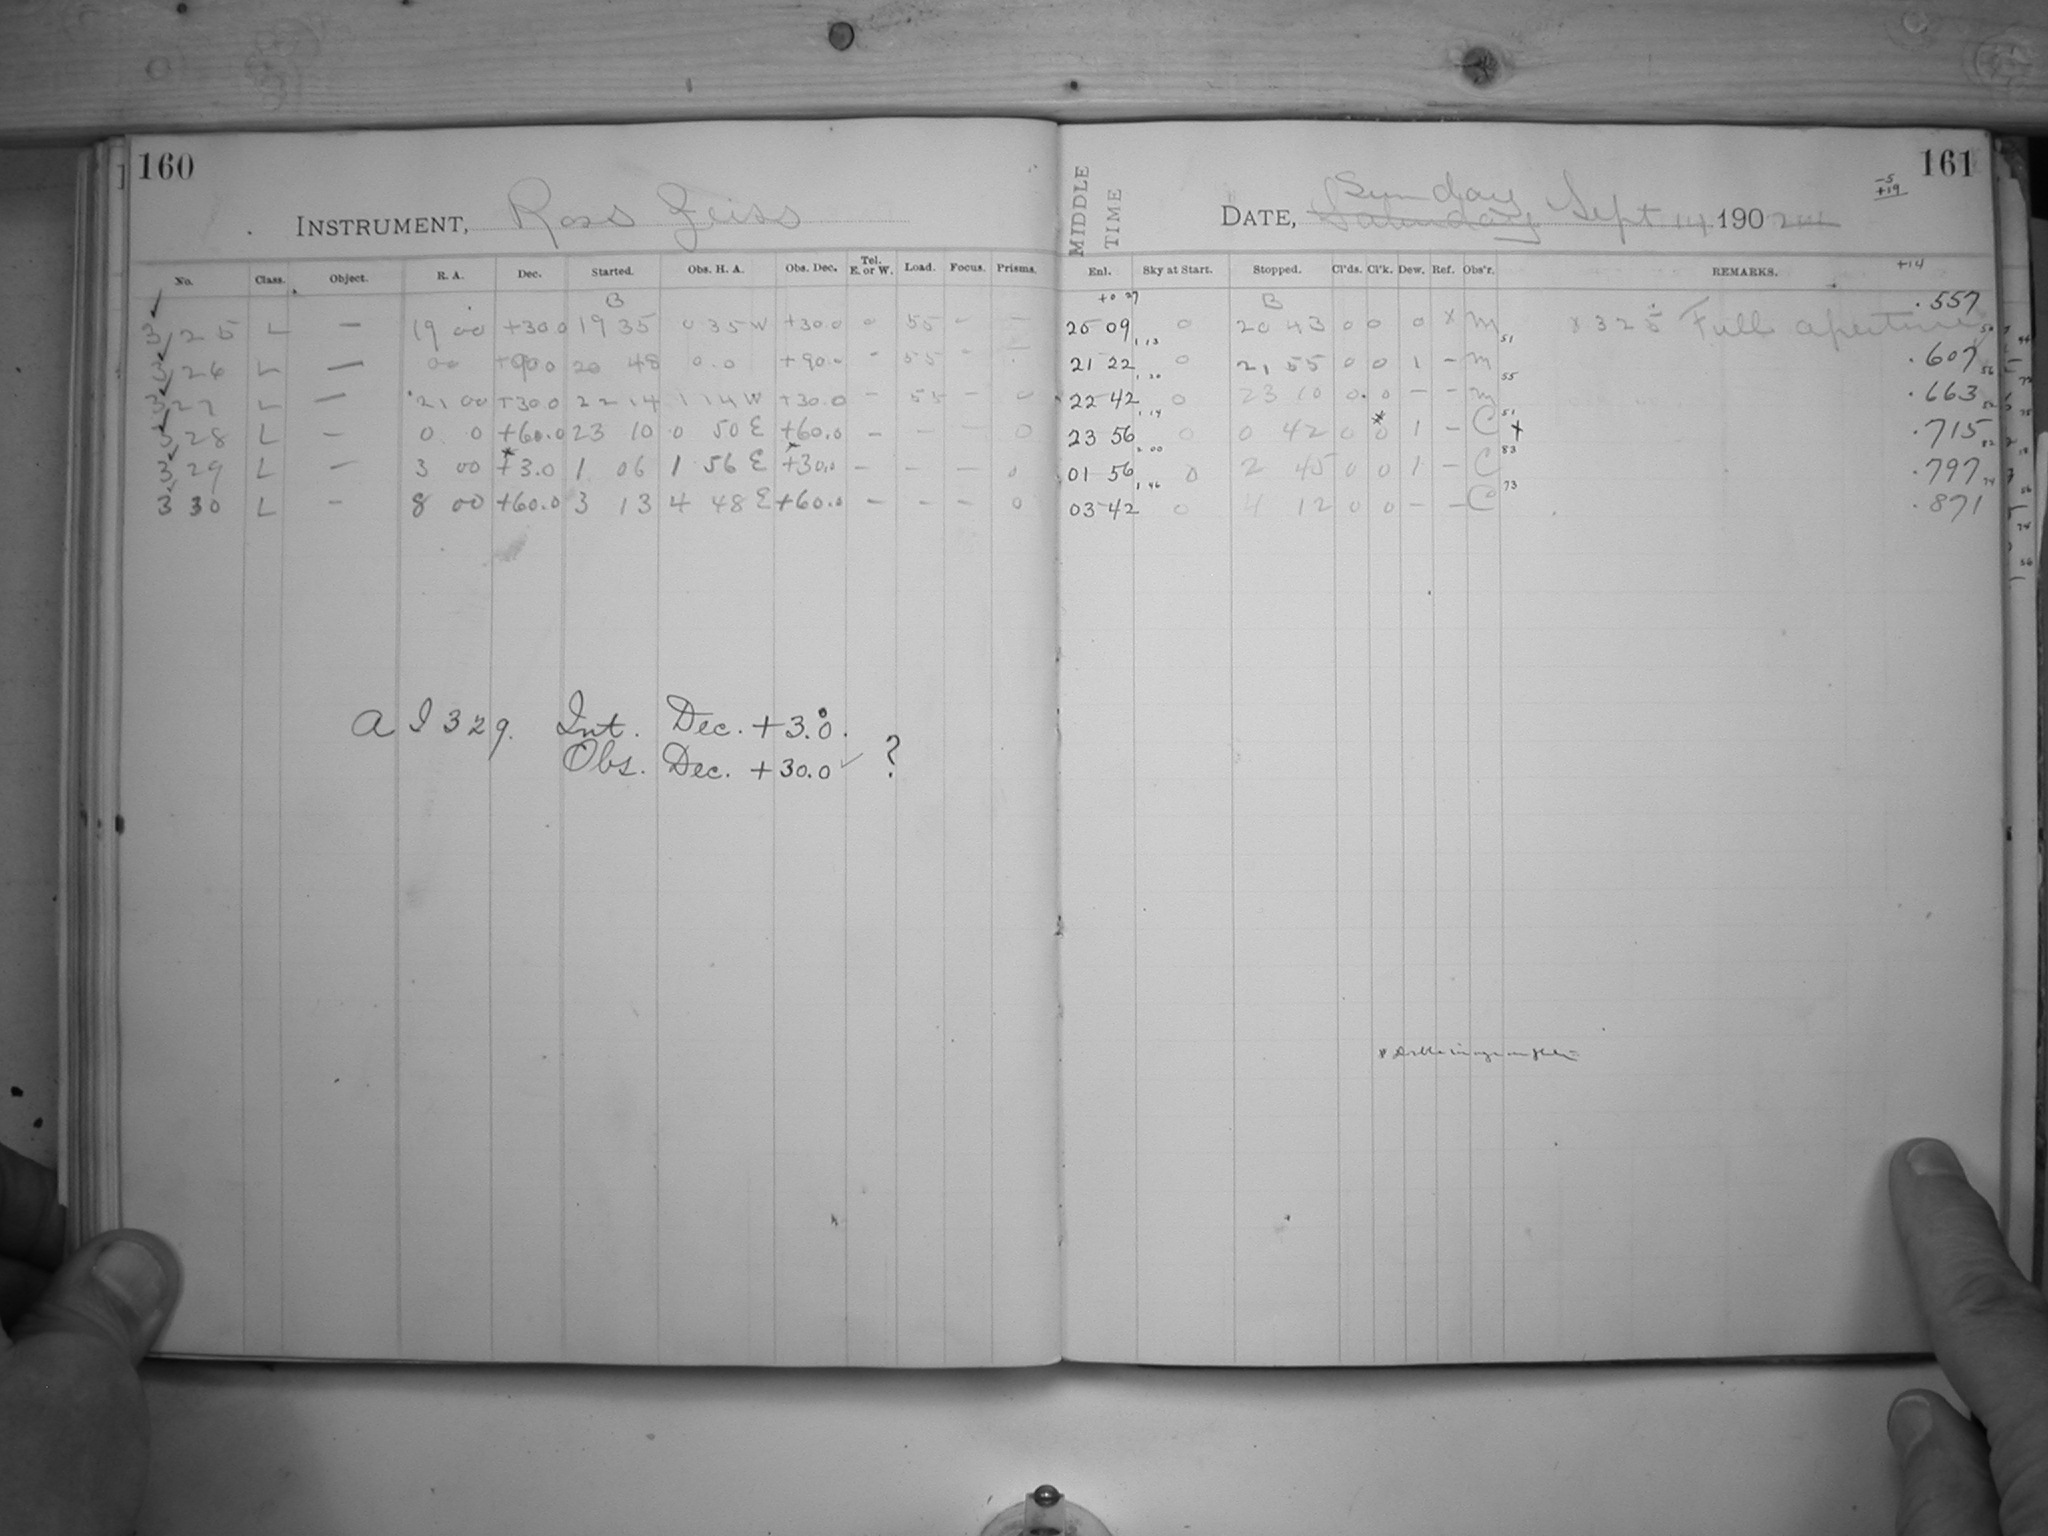 160
INSTRUMENT, Ross Zeiss
No. Class. Object. R. A. Dec. Started. Obs. H. A. Obs. Dec. Tel. E. or W. Load. Focus. Prisms.
B
325 L — 19 00 +30.0 19 35 0 35 W +30.0 - 55 - —
326 L — 00 +90.0 20 48 0.0 +90.0 - 55 - -
327 L — 21 00 +30.0 22 14 1 14 W +30.0 - 55 - 0
328 L — 0 0 +60.0 23 10 0 50 E +60.0 — — — 0
329 L — 3 00 +3.0 1 06 1 56 E +30.0 — — — 0
330 L - 8 00 +60.0 3 13 4 48 E +60.0 — - - 0
A I 329. Int. Dec. +3.0.
Obs. Dec. +30.0 ✓ ?
161
MIDDLE TIME
-5
+19
DATE, Sunday
Saturday Sept 14 190
Enl. Sky at Start. Stopped. Cl'ds. Cl'k. Dew. Ref. Obs'r. REMARKS. +14
B
20 09 0 20 43 0 0 0 x m x 325 Full aperture .557
1 13 51
21 22 0 21 55 0 0 1 - m .607
55
22 42 0 23 10 0 0 - - m .663
1 14 51
23 56 0 0 42 0 0 1 - C x .715
2 00 83
01 56 0 2 45 0 0 1 - C .797
1 46 73
03 42 0 4 12 0 0 - - C .871